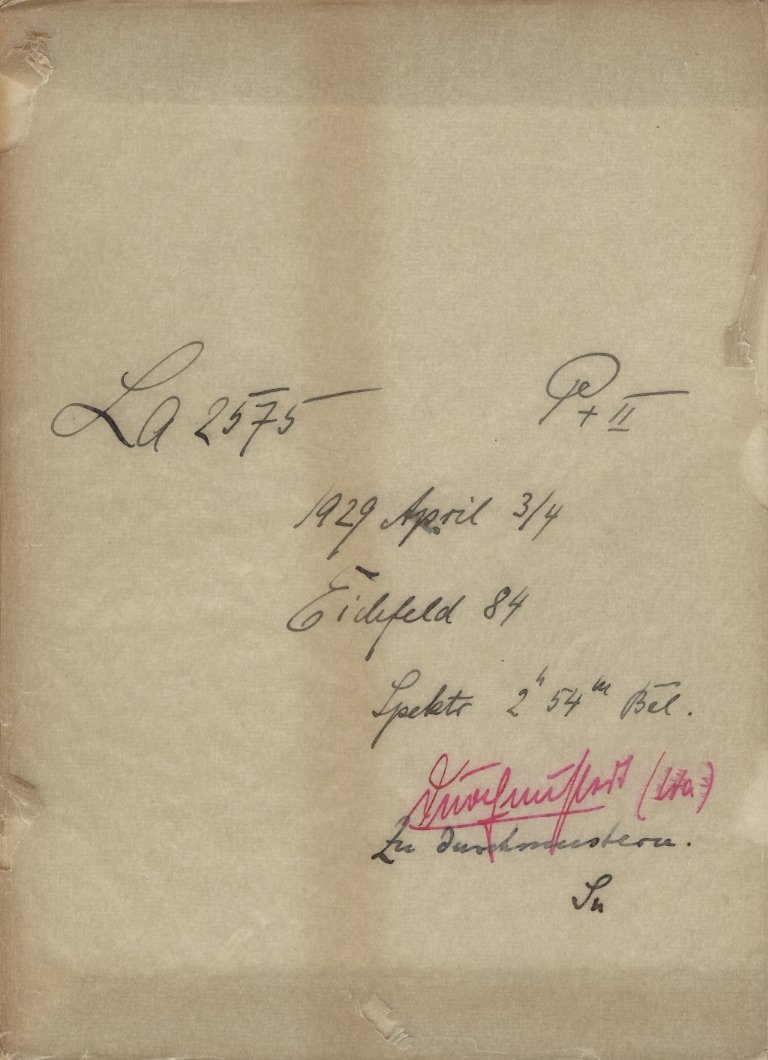 La 2575 Pe + II
1929 April 3/4
Eichfeld 84
Spektr 2h 54m Bel.
Durchmustert
Zu durchmustern.
Sn